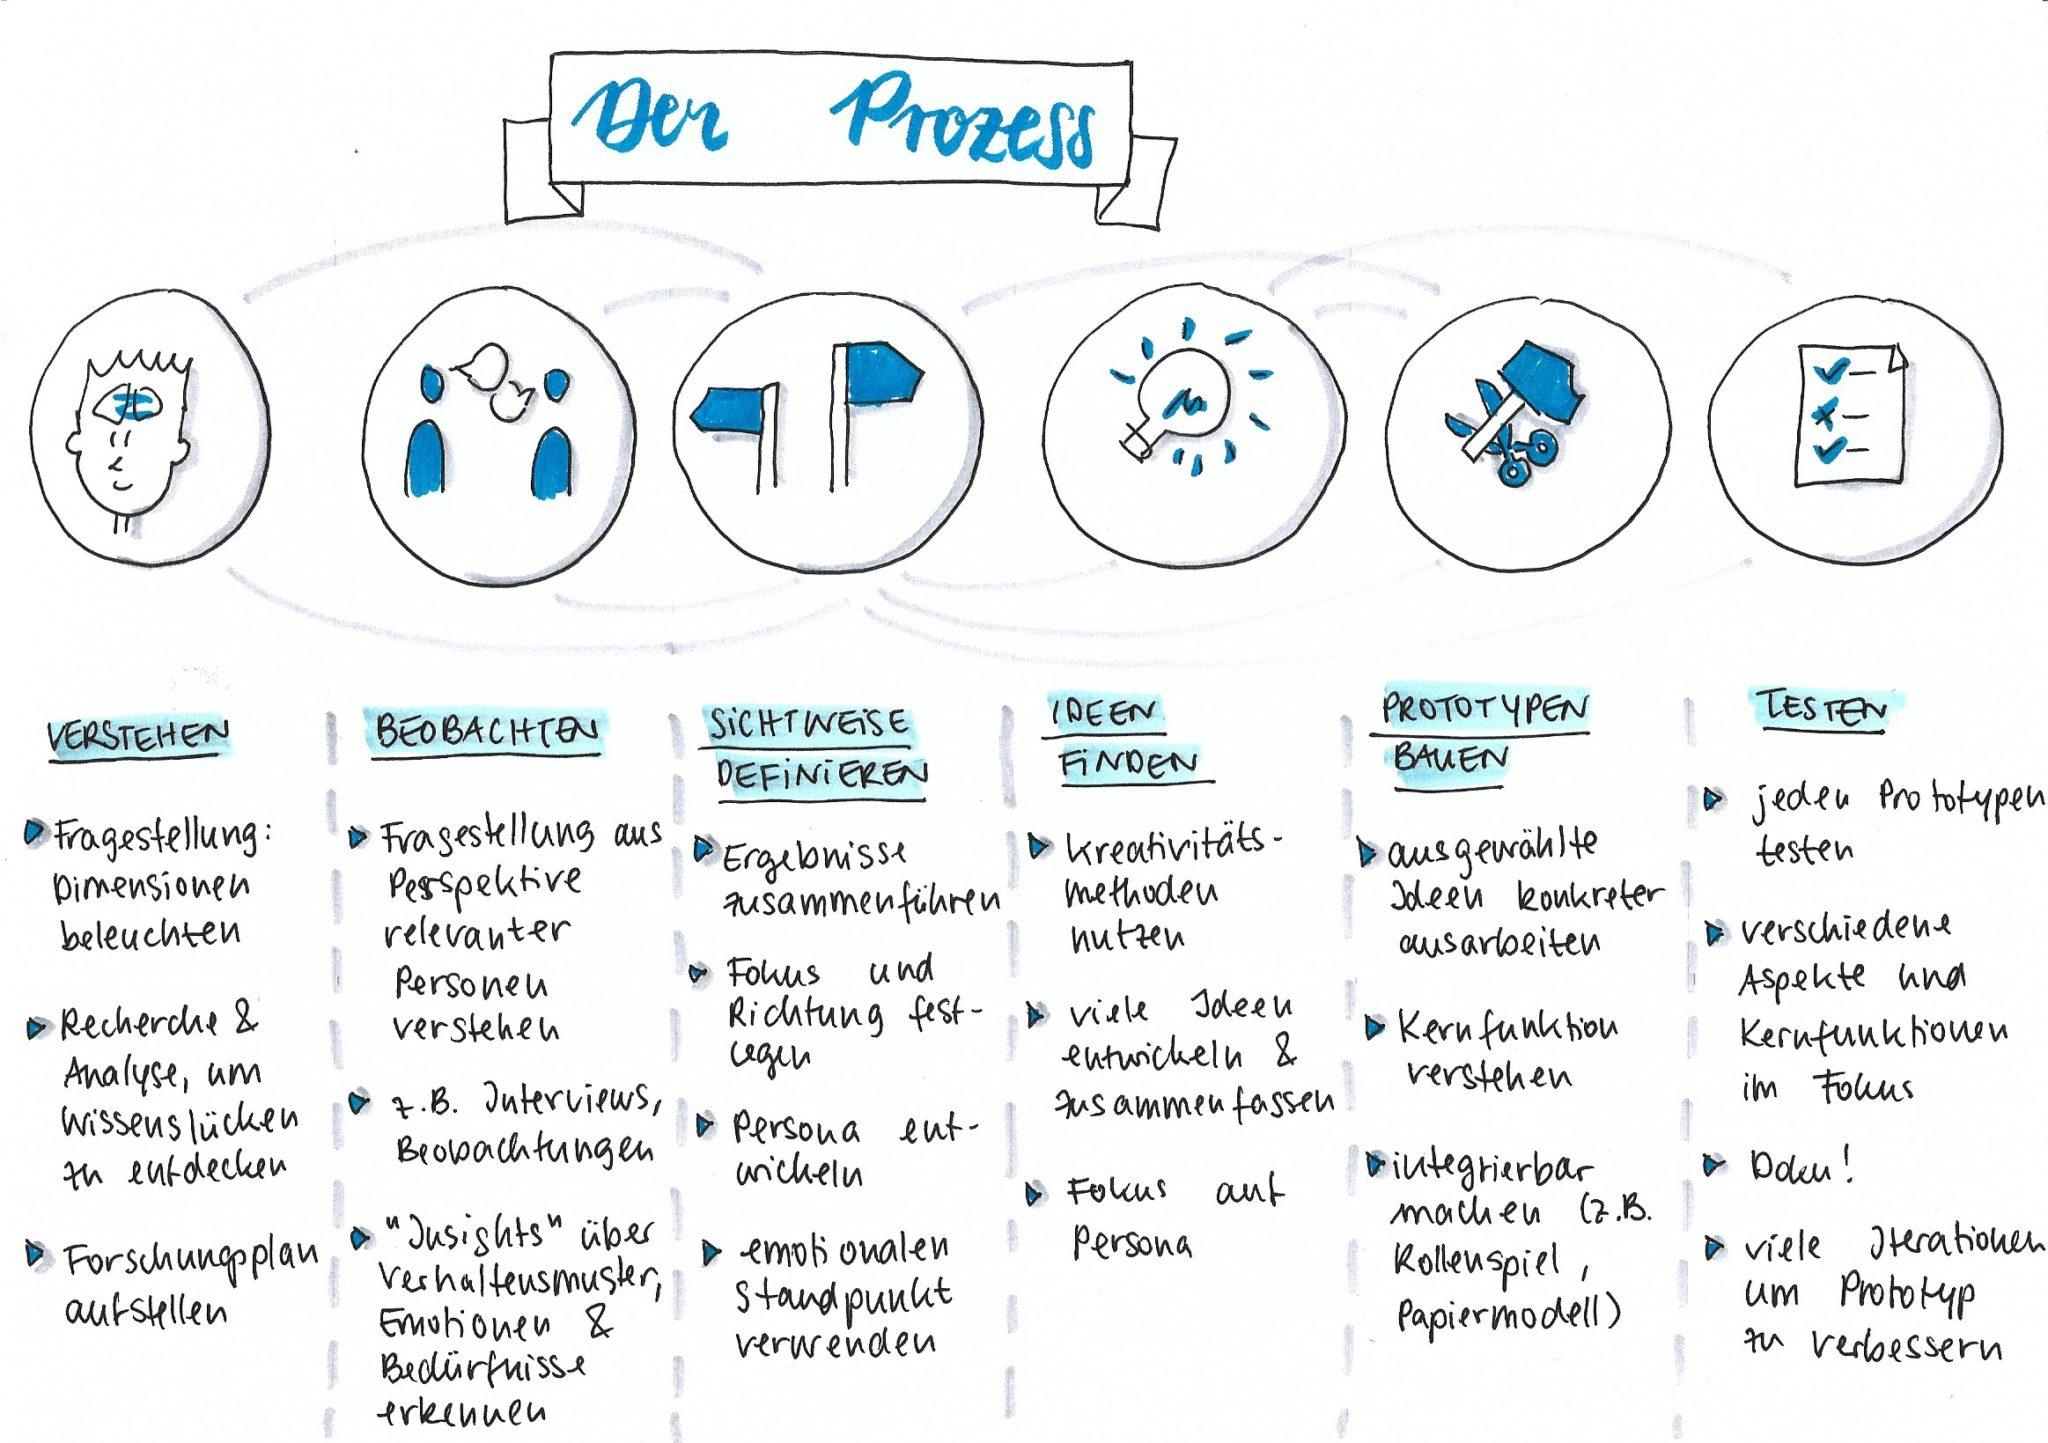 Der Prozess
VERSTEHEN
Fragestellung:
Dimensionen
beleuchten
Recherche &
Analyse, um
Wissenslücken
zu entdecken
Forschungsplan
aufstellen
BEOBACHTEN
Fragestellung aus
Perspektive
relevanter
Personen
verstehen
z.B. Interviews,
Beobachtungen
"Insights" über
Verhaltensmuster,
Emotionen &
Bedürfnisse
erkennen
SICHTWEISE
DEFINIEREN
Ergebnisse
zusammenführen
Fokus und
Richtung fest-
legen
Persona ent-
wickeln
emotionalen
Standpunkt
verwenden
IDEEN
FINDEN
Kreativitäts-
methoden
nutzen
viele Ideen
entwickeln &
zusammenfassen
Fokus auf
Persona
PROTOTYPEN
BAUEN
ausgewählte
Ideen konkreter
ausarbeiten
Kernfunktion
verstehen
integrierbar
machen (z.B.
Rollenspiel,
Papiermodell)
TESTEN
jeden Prototypen
testen
verschiedene
Aspekte und
Kernfunktionen
im Fokus
Doku!
viele Iterationen
um Prototyp
zu verbessern